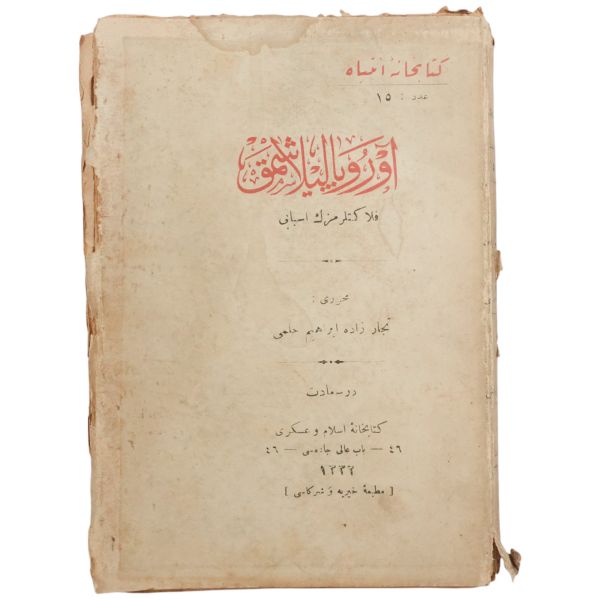 كتابخانهٔ انتباه
عدد : ١٥
آوروپالیلاشمق
فلاكتلرمزك اسبابی
محرری :
تجار زاده ابراهیم حلمی
درسعادت
كتابخانهٔ اسلام و عسكری
٤٦ — باب عالی جاده‌سی — ٤٦
١٣٣٢
[ مطبعهٔ خیریه و شركاسی ]